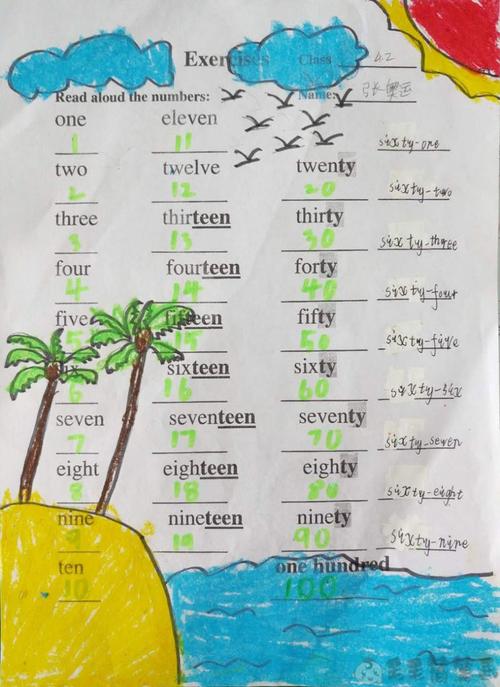 Exercises Class 4.2
Read aloud the numbers: Name: 张奥运
one eleven
1 11 sixty-one
two twelve twenty
2 12 20 sixty-two
three thirteen thirty
3 13 30 sixty-three
four fourteen forty
4 14 40 sixty-four
five fifteen fifty
5 15 50 sixty-five
six sixteen sixty
6 16 60 sixty-six
seven seventeen seventy
7 17 70 sixty-seven
eight eighteen eighty
8 18 80 sixty-eight
nine nineteen ninety
9 19 90 sixty-nine
ten one hundred
10 100
毛毛简笔画